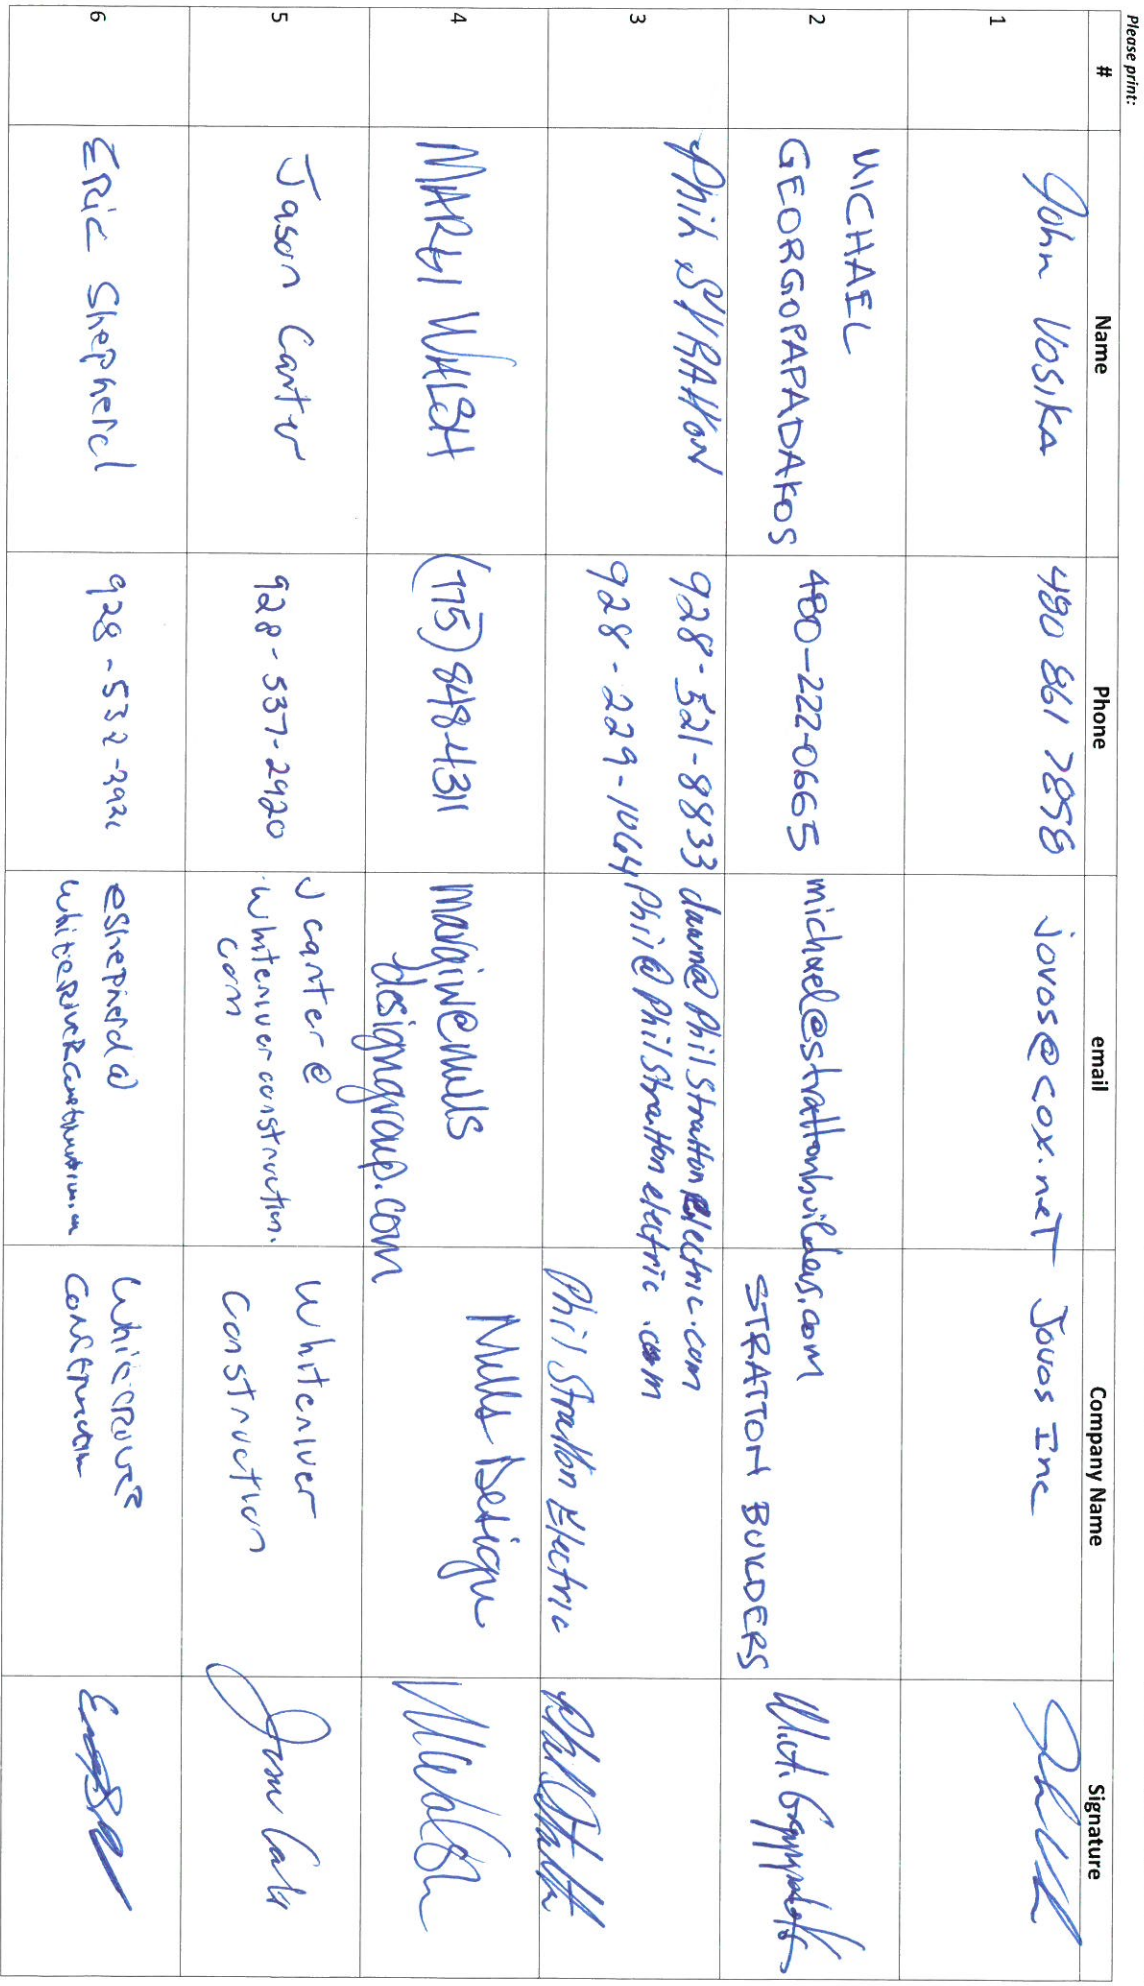 Please print:
# Name Phone email Company Name Signature
1 John Vosika 480 861 7858 jovos@cox.net Jovos Inc
2 MICHAEL
GEORGOPAPADAKOS 480-222-0665 michael@strattonbuilders.com STRATTON BUILDERS
3 Phil STRATTON 928-521-8833 dawn@philstrattonelectric.com
928-229-1064 Phil@Philstrattonelectric.com Phil Stratton Electric
4 MARGI WALSH (775) 848-4311 margiw@mills
designgroup.com Mills Design
5 Jason Carter 928-537-2920 jcarter@
whiteriverconstruction.
com Whiteriver
Construction
6 Eric Shepherd 928-532- eshepherd@
Whiteriver
Construction